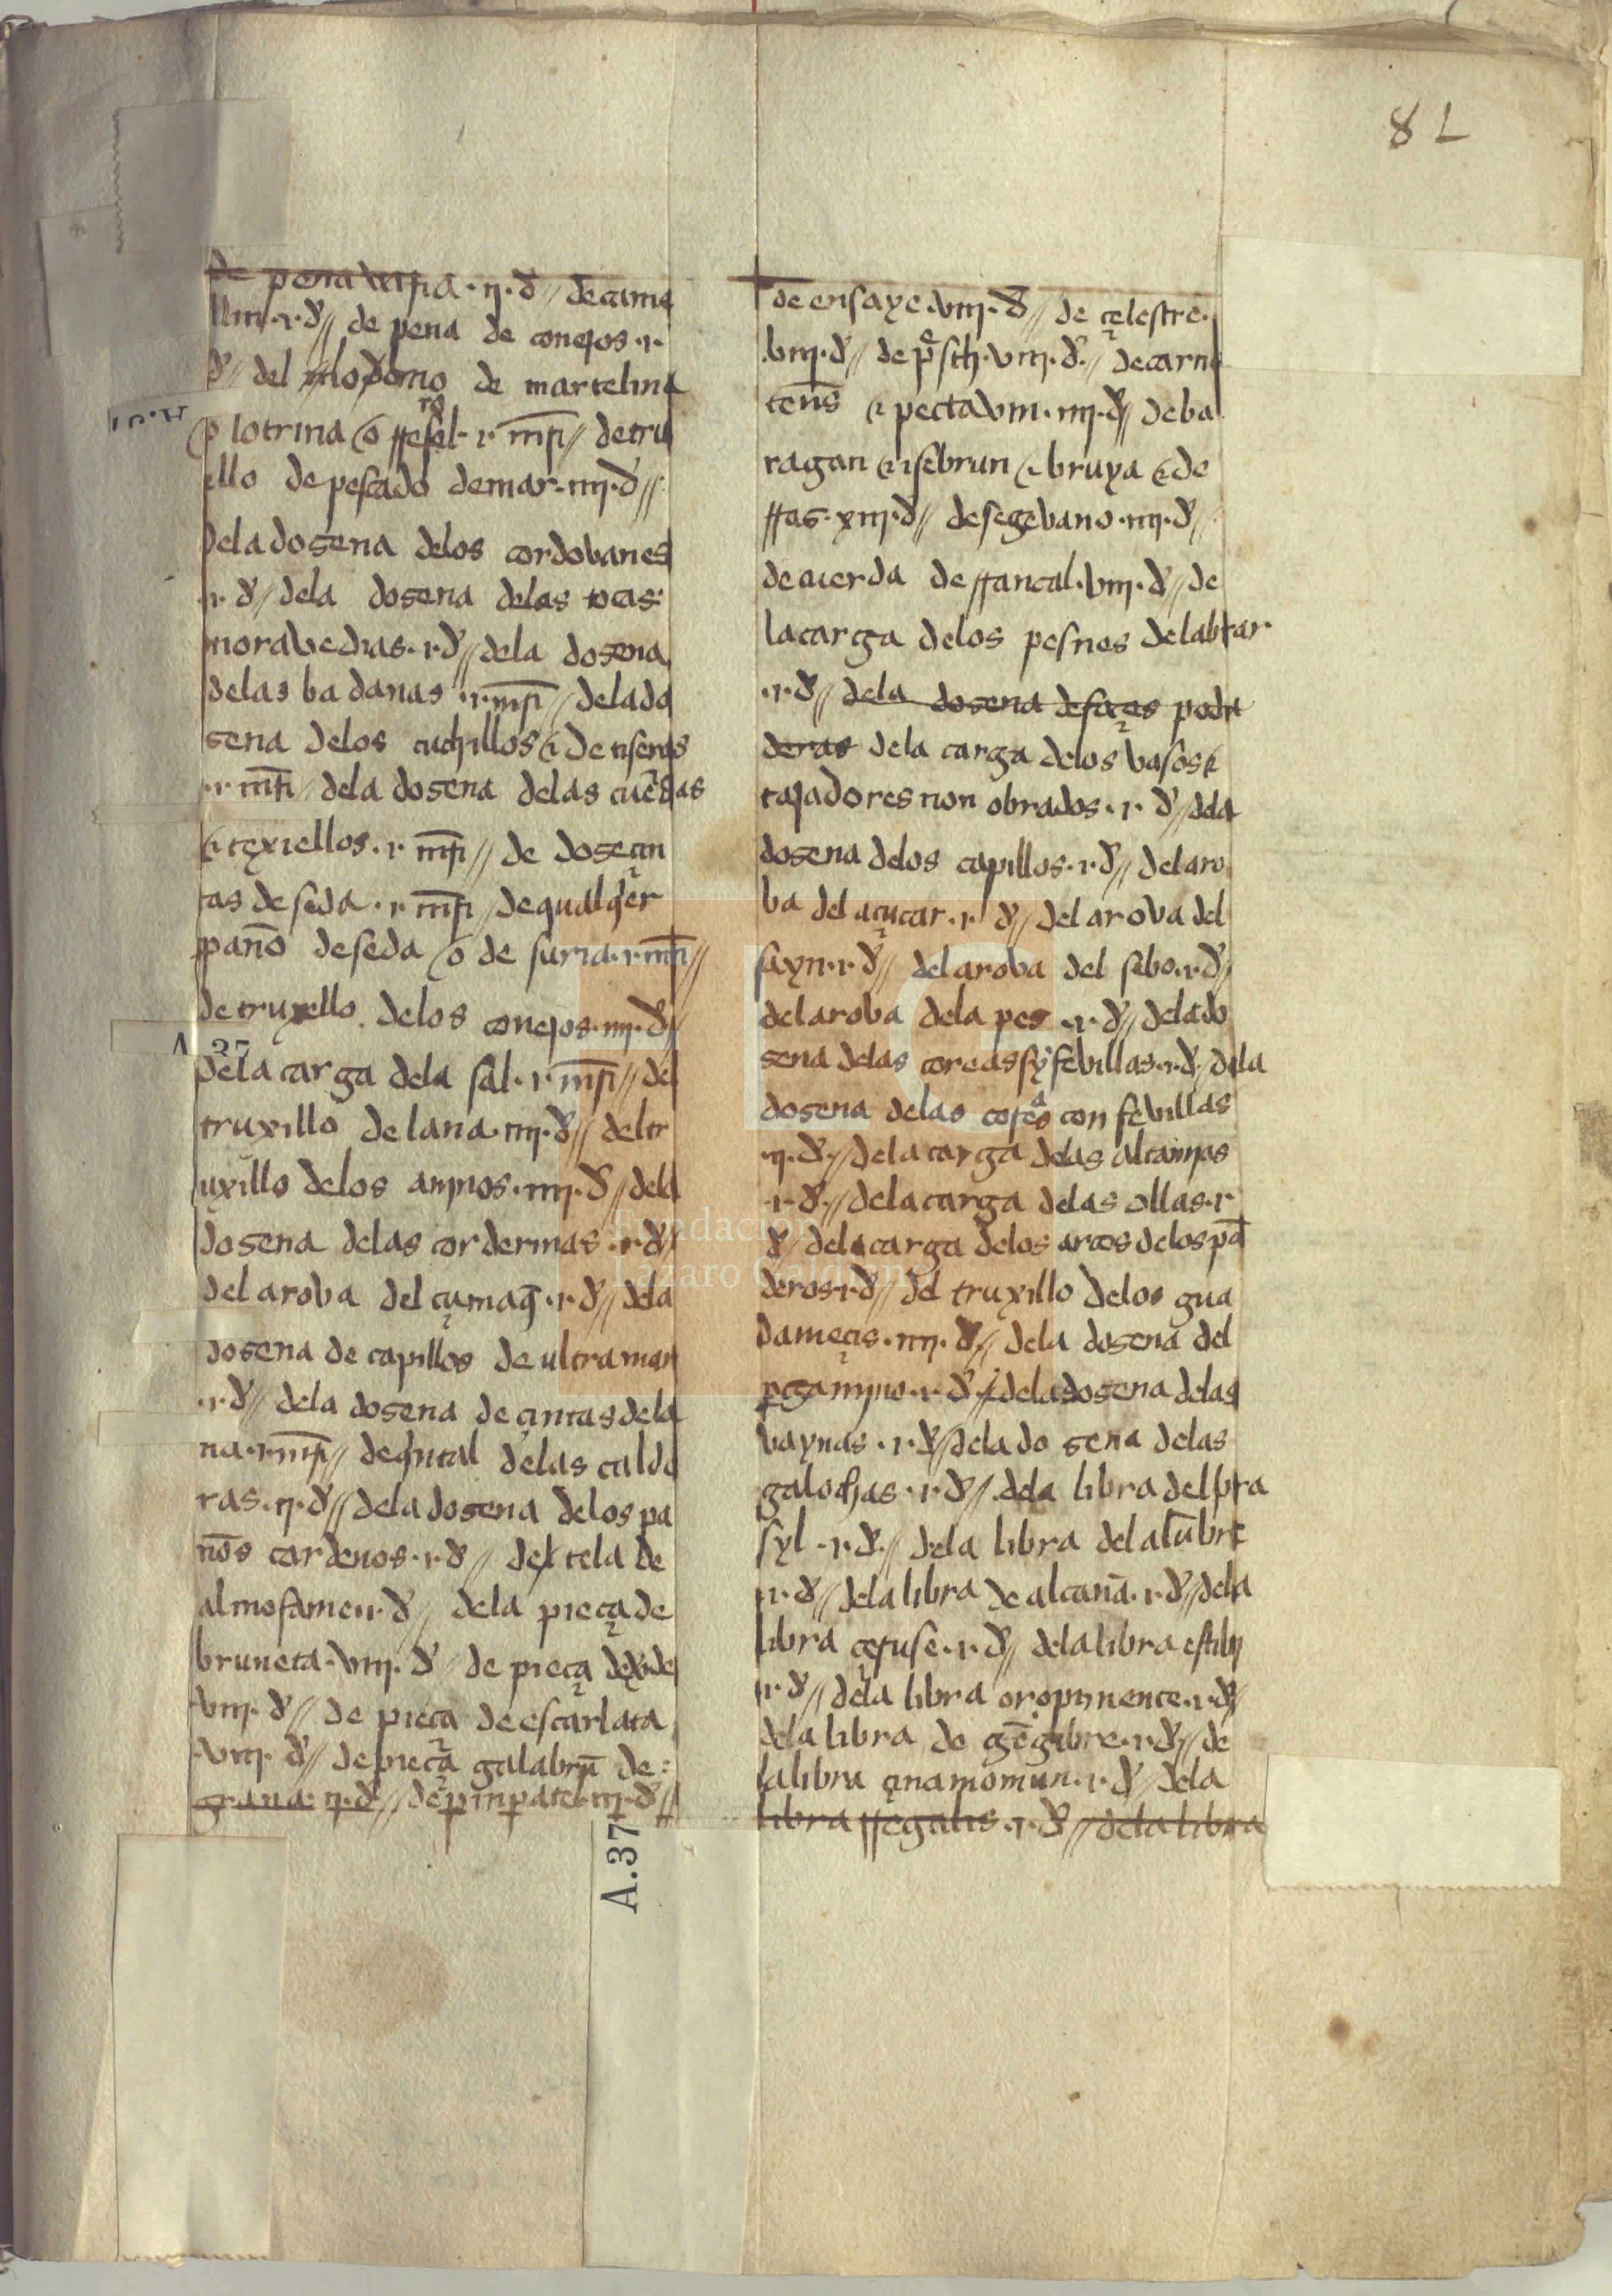 8L
de pena veira .ii. d̄ // de came
llin .i. d̄ // de pena de conejos .i.
d̄ // del lomo de martelina
o lotrina o .i. mr̄i // de tru
ello de pescado de mar .iiii. d̄ //
Dela dosena delos cordovanes
.i. d̄ // dela dosena delas tocas
moravedias .i. d̄ // dela dosena
delas badanas .i. mr̄i // dela do
sena delos cuchillos & de tiseras
.i. mr̄i // dela dosena delas cuēdas
& texiellos .i. mr̄i // de dose çin
tas de seda .i. mr̄i // de qualqer
panō de seda o de suria .i. mr̄i //
de truxello delos conejos .iiii. d̄ //
Dela carga dela sal .i. mr̄i // del
truxillo de lana .iiii. d̄ // del tr
uxillo delos anynos .iiii. d̄ // dela
dosena delas corderinas .i. d̄ //
del aroba del çumaq̄ .i. d̄ // dela
dosena de capillos de ultramar
.i. d̄ // dela dosena de çintas de la
na .i. mr̄i // de qintal delas calde
ras .ii. d̄ // dela dosena delos pa
nōs cardenos .i. d̄ // del tela de
almofame .i. d̄ // dela pieça de
bruneta .viii. d̄ // de pieça de
.viii. d̄ // de pieça de escarlata
.viii. d̄ // de pieça galabrū de
grana .ii. d̄ // de pinpate .iii. d̄ //
de ensaye .viii. d̄ // de çelestre
.viii. d̄ // de .viii. d̄ // de carno
tens & pectavin .iiii. d̄ // de ba
ragan & isebrun & bruya & de
ffas .xiii. d̄ // de segevano .iiii. d̄ //
de cuerda de ffancal .viii. d̄ // de
la carga delos pesnes delabrar
.i. d̄ // dela dosena desaças podo
deras dela carga delos vasos &
tajadores non obrados .i. d̄ // dela
dosena delos capillos .i. d̄ // del aro
ba del açucar .i. d̄ // del arova del
sayn .i. d̄ // del aroba del sebo .i. d̄ //
del aroba dela pes .i. d̄ // dela do
sena delas coreas sy fevillas .i. d̄ // dela
dosena delas con fevillas
.ii. d̄ // dela carga delas alcamyas
.i. d̄ // dela carga delas ollas .i.
d̄ // dela carga delos arcos delos pā
deros .i. d̄ // del truxillo delos gua
dameçis .iiii. d̄ // dela dosena del
pgamyno .i. d̄ // dela dosena delas
vaynas .i. d̄ // dela do sena delas
galochas .i. d̄ // dela libra del bra
syl .i. d̄ // dela libra del alūbre
.i. d̄ // dela libra de alcanā .i. d̄ // dela
libra çetuse .i. d̄ // dela libra estiby
.i. d̄ // dela libra oropimente .i. d̄ //
dela libra de gēgibre .i. d̄ // de
la libra çinamomun .i. d̄ // dela
libra ffegalis .i. d̄ // dela libra
A.37
A 37
Fundación
Lázaro Galdiano